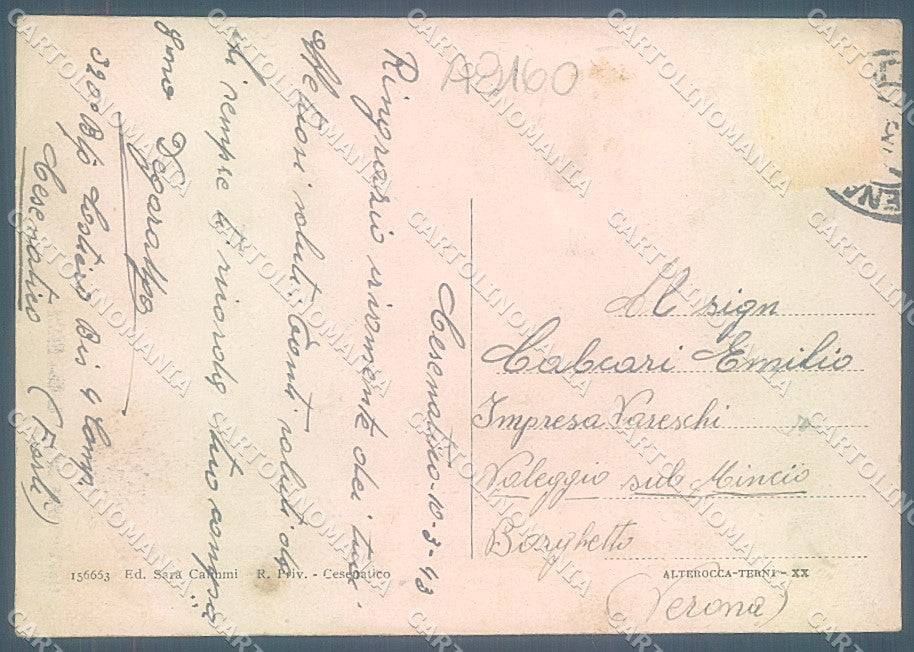 A9160
Cesenatico - 10-3-43
Ringrazio vivamente dei tuoi
affettuosi saluti tanti saluti da
chi sempre ti ricorda tuo compa
gno Degaralpo
320° Btg Costiero Bis 4 Comp.
Cesenatico (Forlì)
Al sign
Calcari Emilio
Impresa Vareschi
Valeggio sul Mincio
Borghetto
(Verona)
156663 Ed. Sara Calummi R. Priv. - Cesenatico
ALTEROCCA-TERNI - XX
CARTOLINOMANIA